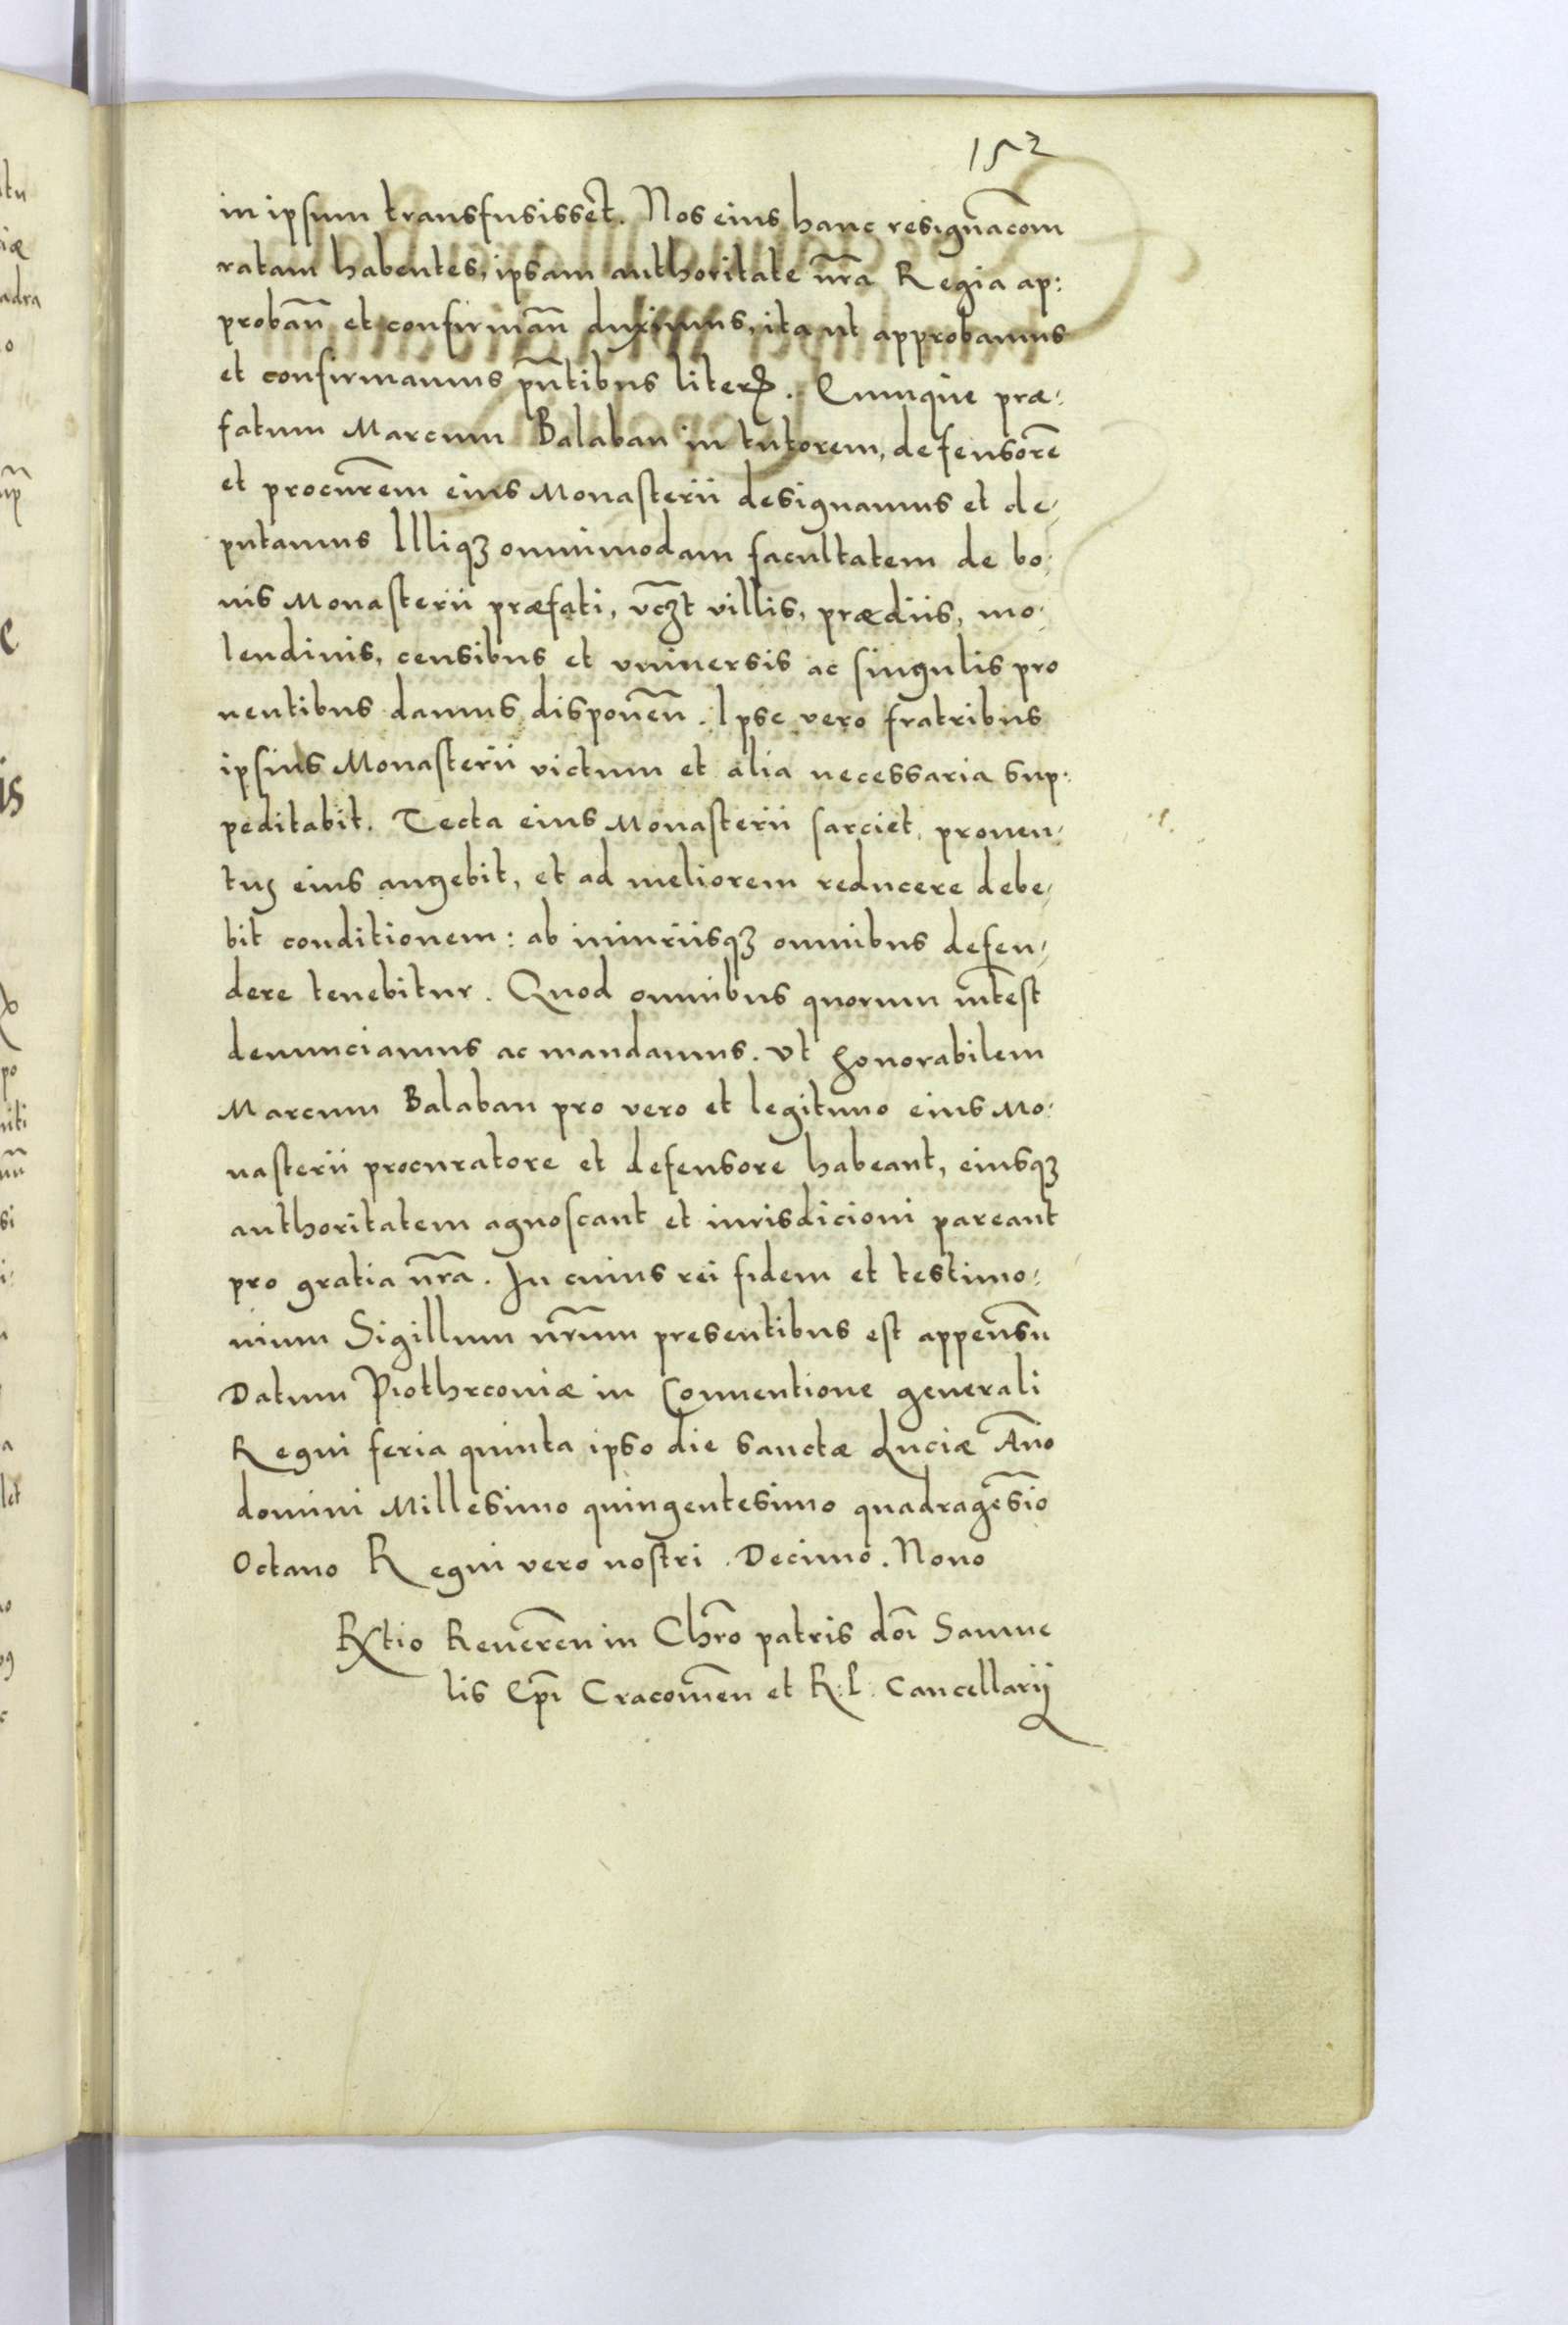 152
in ipsum transfusisset. Nos eius hanc resignac̃om
ratam habentes, ipsam authoritate nr̃a Regia ap:
proban̄ et confirman̄ duximus, ita ut approbamus
et confirmamus pñtibus literꝭ. Eumque præ:
fatum Marcum Balaban in tutorem, defensorē
et procurēm eius Monasterii designamus et de,
putamus Illiqꝫ omnimodam facultatem de bo,
nis Monasterii præfati, vcꝫt villis, prædiis, mo,
lendinis, censibus et vniuersis ac singulis pro
uentibus damus disponēn. Ipse vero fratribus
ipsius Monasterii victum et alia necessaria sup:
peditabit. Tecta eius Monasterii sarciet, prouen,
tus eius augebit, et ad meliorem reducere debe,
bit conditionem: ab iniuriisqꝫ omnibus defen,
dere tenebitur. Quod omnibus quorum int̃est
denunciamus ac mandamus. vt honorabilem
Marcum Balaban pro vero et legitimo eius Mo:
nasterii procuratore et defensore habeant, eiusqꝫ
authoritatem agnoscant et iurisdicioni pareant
pro gratia nr̃a. In cuius rei fidem et testimo:
nium Sigillum nr̃um presentibus est appensū
Datum Piothrcouiæ in Conuentione generali
Regni feria quinta ipso die sanctæ Luciæ Año
domini Millesimo quingentesimo quadragēsio
Octauo Regni vero nostri. Decimo. Nono
Rx̃tio Reuerēn in Chr̃o patris doī Samue
lis Ep̃i Cracouiēn et R. P. Cancellarij